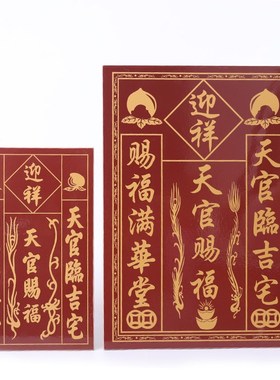 迎祥
天官臨吉宅
天官賜福
賜福滿華堂
迎祥
天官臨吉宅
天官賜福